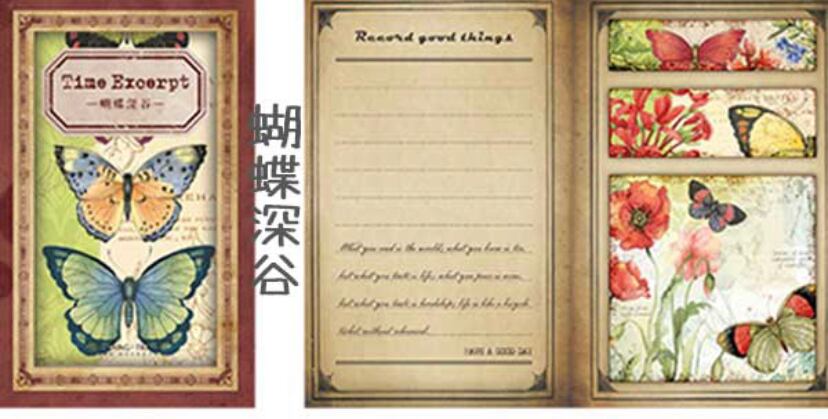 Time Excerpt
—蝴蝶深谷—
蝴蝶深谷
Record good things
What you read is the world, what you brew is tea,
but what you taste is life, what you pour is wine,
but what you taste is hardship, life is like a bicycle
ticket without rehearsal.
HAVE A GOOD DAY